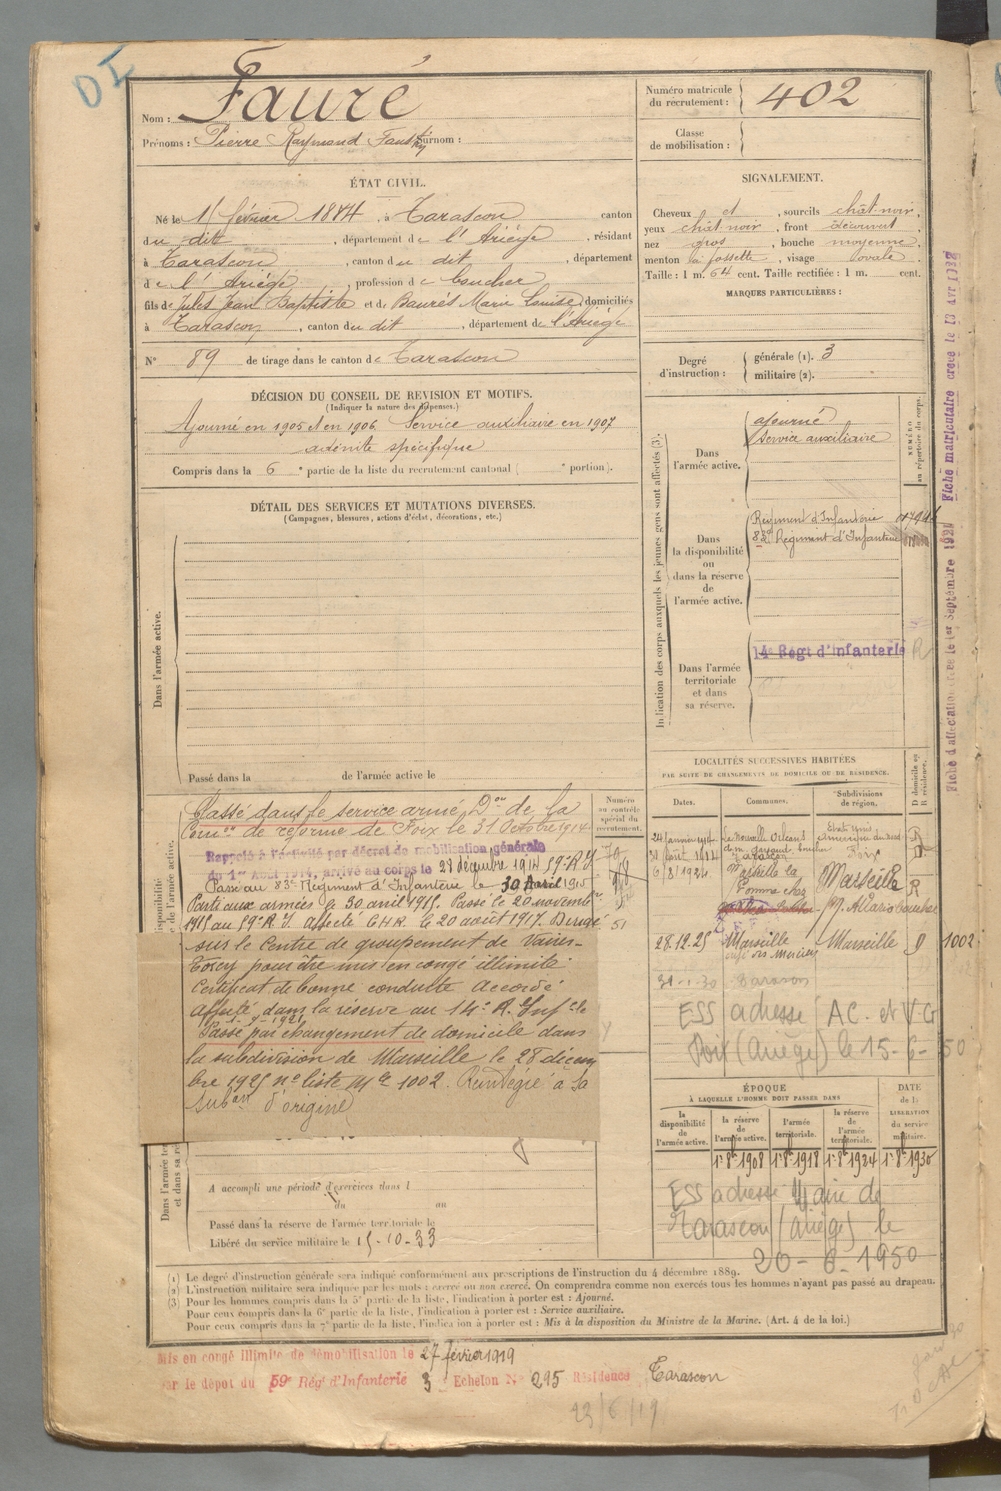 DI
Nom : Fauré
Prénoms : Pierre Raymond Faustin Surnom :
Numéro matricule du recrutement : 402
Classe de mobilisation :
ÉTAT CIVIL.
Né le 15 février 1884, à Tarascon canton
du dit, département de l'Ariège, résidant
à Tarascon, canton du dit, département
de l'Ariège, profession de boucher
fils de Jules Jean Baptiste et de Baurès Marie Louise, domiciliés
à Tarascon, canton du dit, département de l'Ariège
N° 89 de tirage dans le canton de Tarascon
SIGNALEMENT.
Cheveux et, sourcils chât. noir,
yeux chât. noir, front découvert,
nez gros, bouche moyenne,
menton à fossette, visage ovale.
Taille : 1 m. 64 cent. Taille rectifiée : 1 m. cent.
MARQUES PARTICULIÈRES :
Degré d'instruction : générale (1). 3
militaire (2).
DÉCISION DU CONSEIL DE REVISION ET MOTIFS.
(Indiquer la nature des dispenses.)
Ajourné en 1905 et en 1906 Service auxiliaire en 1907
adénite spécifique
Compris dans la 6e partie de la liste du recrutement cantonal ( e portion).
DÉTAIL DES SERVICES ET MUTATIONS DIVERSES.
(Campagnes, blessures, actions d'éclat, décorations, etc.)
Dans l'armée active.
Passé dans la de l'armée active le
Indication des corps auxquels les jeunes gens sont affectés (3).
NUMÉRO au répertoire du corps.
Dans l'armée active.
ajourné
Service auxiliaire
Dans la disponibilité ou dans la réserve de l'armée active.
Régiment d'Infanterie
83e Régiment d'Infanterie
Dans l'armée territoriale et dans sa réserve.
14e Régt d'infanterie R
Fiche d'affectation créée le 1er Septembre 1921 Fiche matriculaire créée le 13 Avr 1932
Classé dans le service armé, Don de la
Comon de réforme de Foix le 31 Octobre 1914
Rappelé à l'activité par décret de mobilisation générale
du 1er Août 1914, arrivé au corps le 28 décembre 1914 59e R.I.
Passé au 83e Régiment d'Infanterie le 30 Avril 1915
Parti aux armées le 30 avril 1915. Passé le 20 novembre
1915 au 59e R.I. Affecté CHR le 20 août 1917. Dirigé
sur le Centre de groupement de Vaires-
Torcy pour être mis en congé illimité
Certificat de bonne conduite Accordé
Affecté dans la réserve au 14e R. Infie
Passé par changement de domicile dans
la subdivision de Marseille le 28 décem
bre 1925 ne liste Mle 1002. Réintégré à sa
subon d'origine
Numéro au contrôle spécial du recrutement.
51
LOCALITÉS SUCCESSIVES HABITÉES
PAR SUITE DE CHANGEMENTS DE DOMICILE OU DE RÉSIDENCE.
Dates. Communes. Subdivisions de région. D domicile ou R résidence.
La Nouvelle Orléans Etats Unis
Tarascon Foix
6/8/1924 Marseille la Pomme chez Marseille R
28.12.25 Marseille Marseille D 1002
31-1-30 Tarascon
ESS adresse AC. et V.G
Foix (Ariège) le 15-6-50
ÉPOQUE
À LAQUELLE L'HOMME DOIT PASSER DANS
la disponibilité de l'armée active. la réserve de l'armée active. l'armée territoriale. la réserve de l'armée territoriale.
DATE de la LIBÉRATION du service militaire.
1er 8bre 1908 1er 8bre 1918 1er 8bre 1924 1er 8bre 1930
ESS adresse Maire de
Tarascon (Ariège) le
20-6-1950
A accompli une période d'exercices dans l
du au
Passé dans la réserve de l'armée territoriale le
Libéré du service militaire le 15-10-33
(1) Le degré d'instruction générale sera indiqué conformément aux prescriptions de l'instruction du 4 décembre 1889.
(2) L'instruction militaire sera indiquée par les mots : exercé ou non exercé. On comprendra comme non exercés tous les hommes n'ayant pas passé au drapeau.
(3) Pour les hommes compris dans la 5e partie de la liste, l'indication à porter est : Ajourné.
Pour ceux compris dans la 6e partie de la liste, l'indication à porter est : Service auxiliaire.
Pour ceux compris dans la 7e partie de la liste, l'indication à porter est : Mis à la disposition du Ministre de la Marine. (Art. 4 de la loi.)
Mis en congé illimité de démobilisation le 27 février 1919
par le dépôt du 59e Rég. d'Infanterie 3 Echelon N° 295 Résidence Tarascon
23/6/19